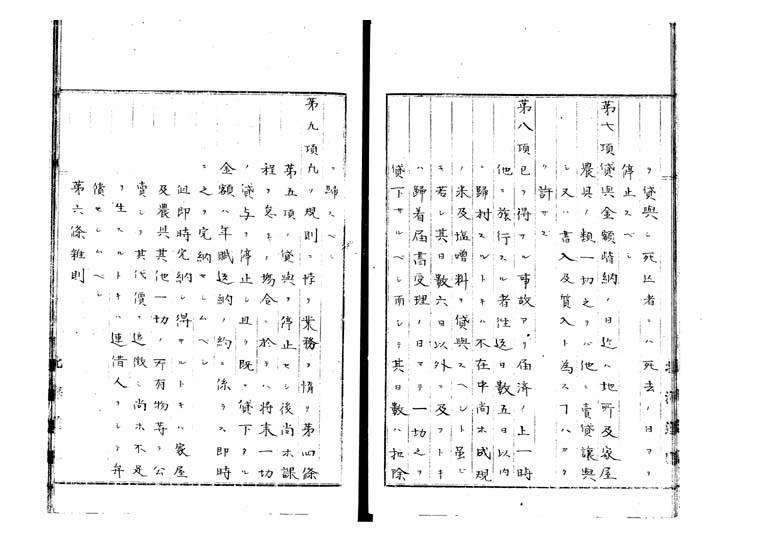 ヲ貸與シ死亡者ニハ死去ノ日ヨリ
停止スベシ
第七項貸與金額皆納ノ日迄ハ地所及家屋
農具ノ類一切之ヲバ他ニ賣貸讓與
シ又ハ書入及質入ト為スヿハカタ
ク許サズ
第八項已ヲ得サル事故アリ届済ノ上一時
他ニ旅行スル者往返日數五日以内
ニ歸村スルトキハ不在中尚ホ成規
ノ米及塩噌料ヲ貸與スヘシト雖ピ
キ若シ其日數六日以外ニ及フトキ
ハ歸着届書受理ノ日マテ一切之ヲ
貸下サルベシ而シテ其日數ハ扣除
ニ歸スベシ
第九項凡ソ規則ニ悖リ業務ヲ惰リ第四條
第五項ノ貸與ヲ停止セシ後尚ホ課
程ヲ怠ルノ場合ニ於テハ將来一切
ノ貸与ヲ停止シ且ツ既ニ貸下タル
金額ハ年賦返納ノ約ニ係ラス即時
ニ之ヲ完納セシムベシ
但即時完納シ得サルトキハ家屋
及農具其他一切ノ所有物等ヲ公
賣シテ其代價ヲ追徴シ尚ホ不足
ヲ生スルトキハ連借人ヲシテ弁
償セシムベシ
第六條雜則